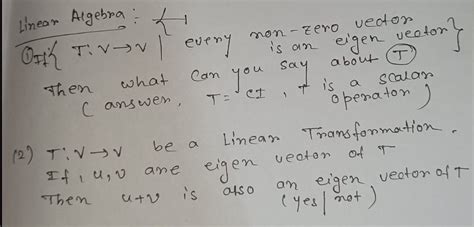 Linear Algebra :-
① If { T: V → V | every non-zero vector
is an eigen vector }
Then what can you say about T
( answer, T = cI, T is a scalar
operator )
(2) T: V → V be a Linear Transformation.
If, u, v are eigen vector of T
Then u+v is also an eigen vector of T
(yes / not)